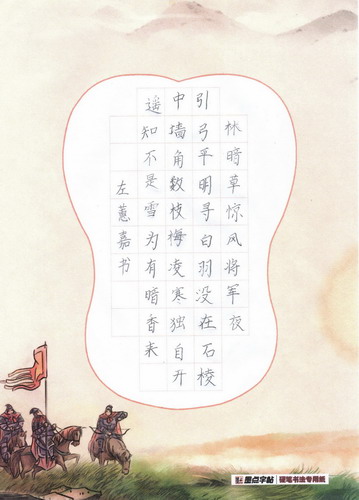 林暗草惊风将军夜
引弓平明寻白羽没在石棱
中墙角数枝梅凌寒独自开
遥知不是雪为有暗香来
左蕙嘉书
墨点字帖 硬笔书法专用纸